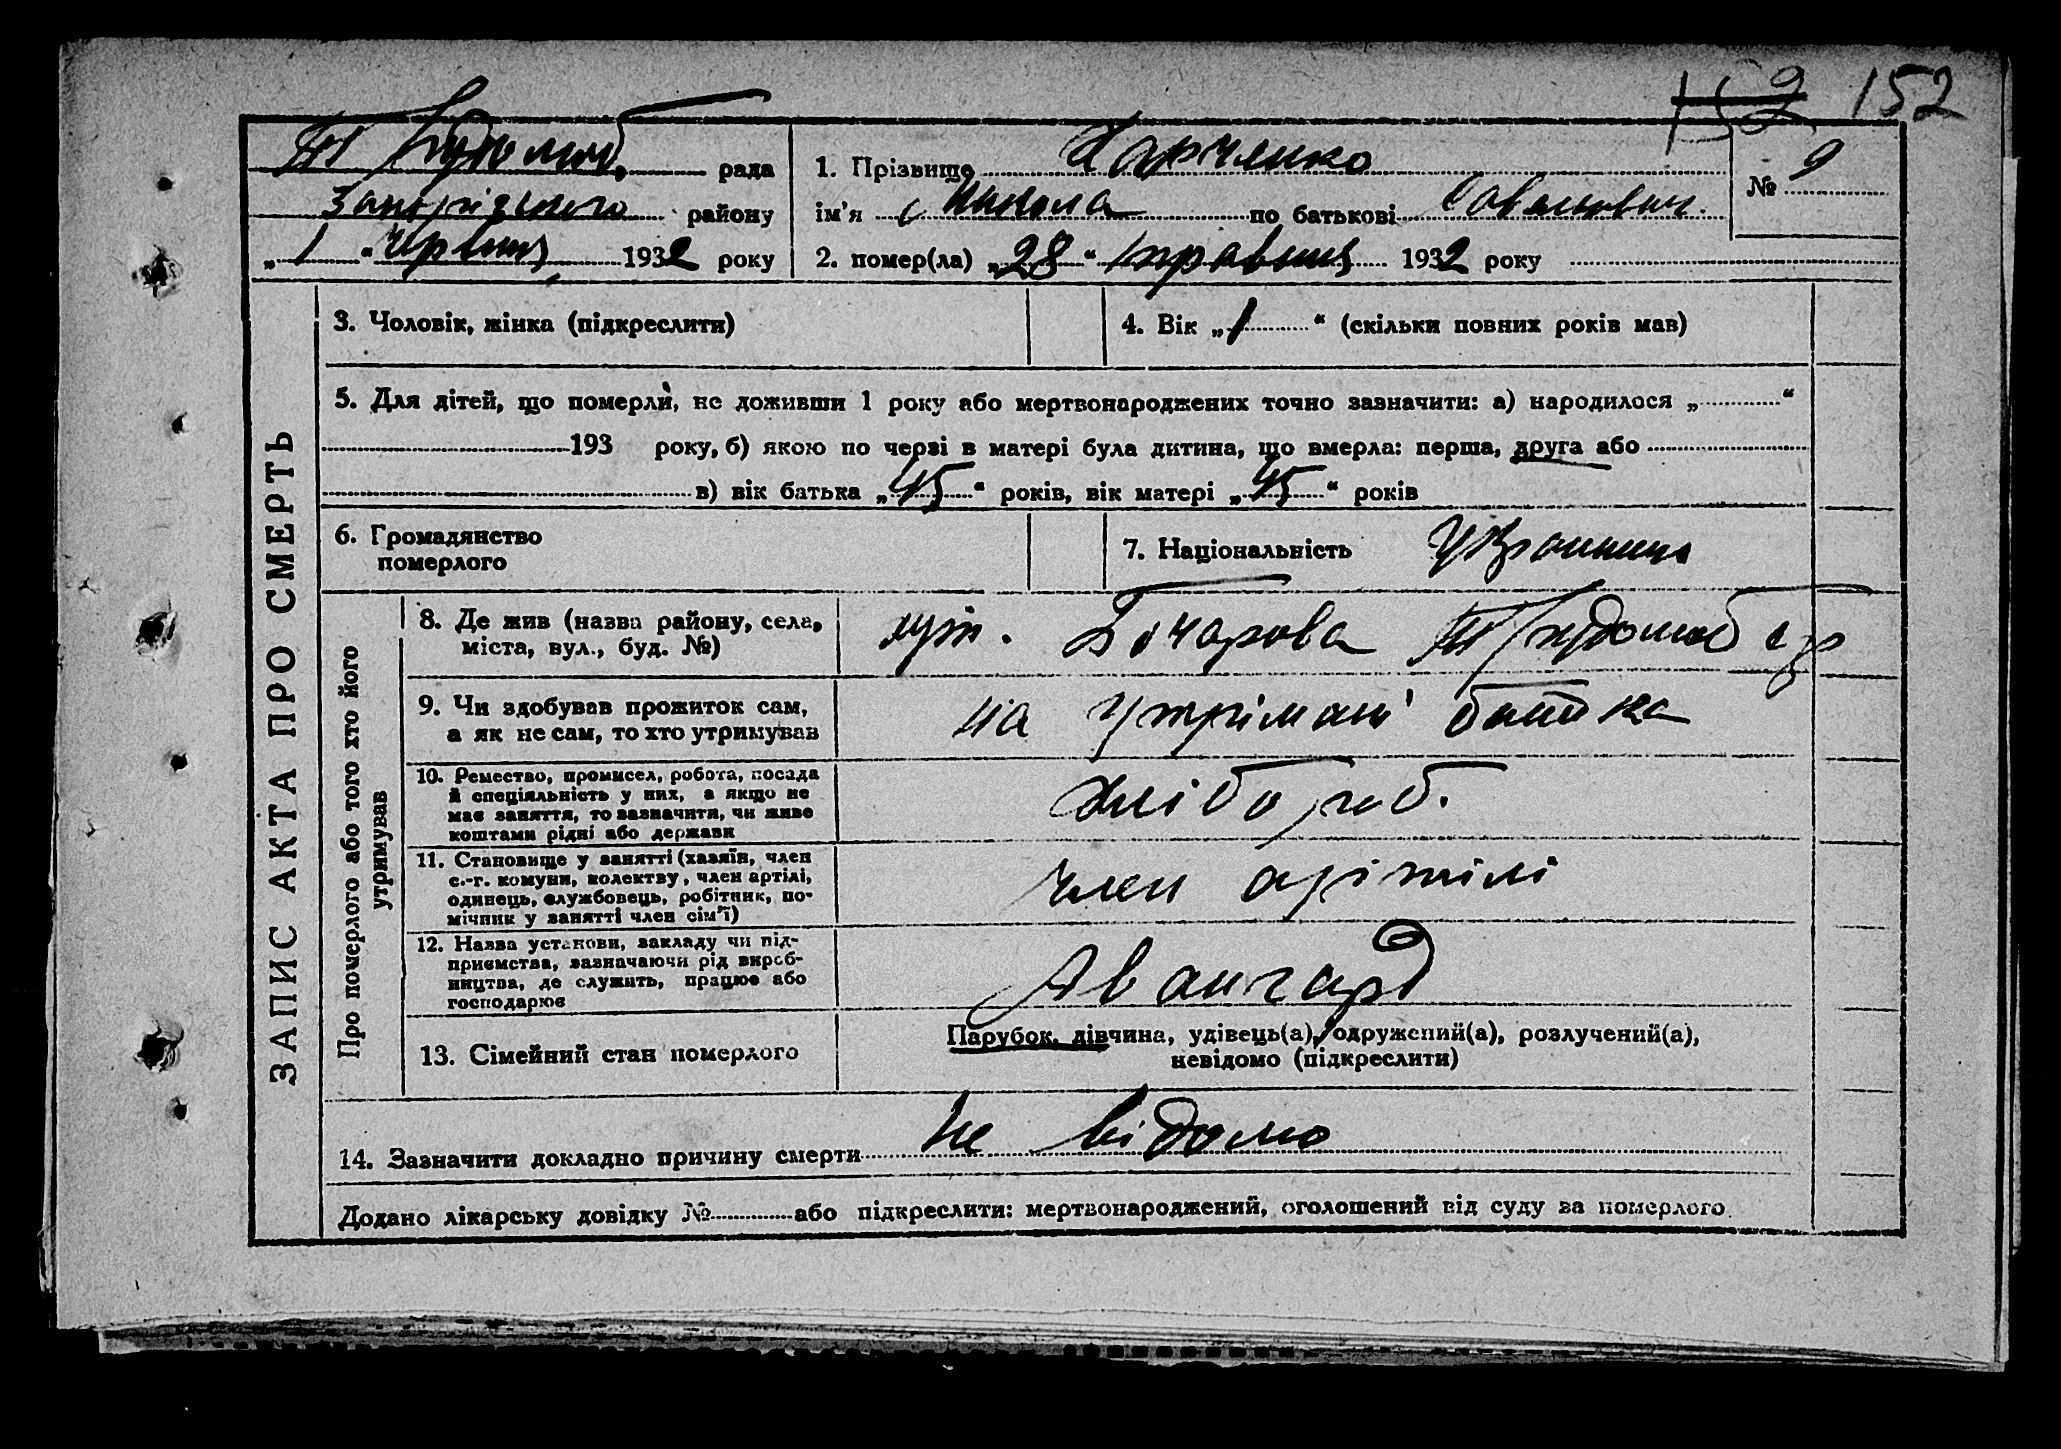 152 152
рада
1. Прізвище Харченко
№ 9
району
ім'я Микола по батькові
„ 1 “ червня 1932 року
2. помер(ла) „ 28 “ травня 1932 року
ЗАПИС АКТА ПРО СМЕРТЬ
3. Чоловік, жінка (підкреслити)
4. Вік „ 1 “ (скільки повних років мав)
5. Для дітей, що померли, не доживши 1 року або мертвонароджених точно зазначити: а) народилося „ “
193 року, б) якою по черзі в матері була дитина, що вмерла: перша, друга або
в) вік батька „ 45 “ років, вік матері „ 45 “ років
6. Громадянство
померлого
7. Національність
Про померлого або того хто його
утримував
8. Де жив (назва району, села,
міста, вул., буд. №)
Бочарова
9. Чи здобував прожиток сам,
а як не сам, то хто утримував
на утрімані батька
10. Ремество, промисел, робота, посада
й спеціяльність у них, а якщо не
має заняття, то зазначити, чи живе
коштами рідні або держави
Хлібороб.
11. Становище у занятті (хазяїн, член
с.-г. комуни, колективу, член артілі,
одинець, службовець, робітник, по-
мічник у занятті член сім'ї)
член артілі
12. Назва установи, закладу чи під-
приємства, зазначаючи рід вироб-
ництва, де служить, працює або
господарює
Авангард
13. Сімейний стан померлого
Парубок, дівчина, удівець(а), одружений(а), розлучений(а),
невідомо (підкреслити)
14. Зазначити докладно причину смерти не відомо
Додано лікарську довідку № або підкреслити: мертвонароджений, оголошений від суду за померлого.